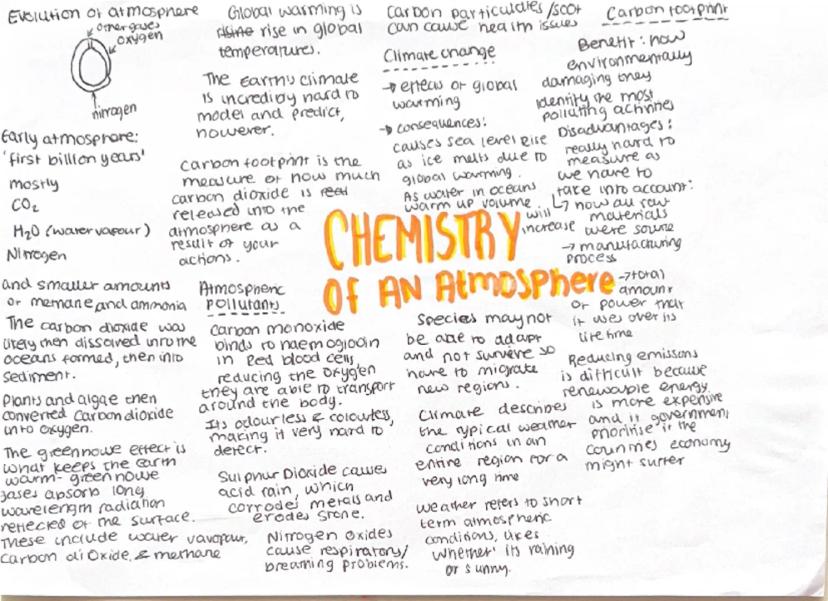 Evolution of atmosphere
other gases
oxygen
nitrogen
Early atmosphere:
'first billion years'
mostly
CO₂
H₂O (water vapour)
Nitrogen
and smaller amounts
of methane and ammonia
The carbon dioxide was
likely then dissolved into the
oceans formed, then into
sediment.
Plants and algae then
converted carbon dioxide
into oxygen.
The greenhouse effect is
what keeps the earth
warm - greenhouse
gases absorb long
wavelength radiation
reflected of the surface.
These include water vapour,
carbon dioxide, & methane
Global warming is
rise in global
temperatures.
The Earth's climate
is incredibly hard to
model and predict,
however.
Carbon footprint is the
measure of how much
carbon dioxide is
released into the
atmosphere as a
result of your
actions.
Atmospheric
pollutants
Carbon monoxide
binds to haemoglobin
in Red blood cells,
reducing the oxygen
they are able to transport
around the body.
Its odourless & colourless,
making it very hard to
detect.
Sulphur Dioxide causes
acid rain, which
corrodes metals and
erodes stone.
Nitrogen oxides
cause respiratory/
breathing problems.
CHEMISTRY
OF AN AtmosPhere
Carbon particulates/soot
can cause health issues
Climate change
→ effects of global
warming
→ consequences:
causes sea level rise
as ice melts due to
global warming.
As water in oceans
warm up volume
will
increase
Species may not
be able to adapt
and not survive so
have to migrate
new regions.
Climate describes
the typical weather
conditions in an
entire region for a
very long time
Weather refers to short
term atmospheric
conditions, likes
whether its raining
or sunny.
Carbon footprint
Benefit: how
environmentally
damaging they
Identify the most
polluting activities
Disadvantages:
really hard to
measure as
we have to
take into account:
↳ how all raw
materials
were source
→ manufacturing
process
→ total
amount
of power that
it uses over its
lifetime
Reducing emissons
is difficult because
renewable energy
is more expensive
and if government
prioritise it the
countries economy
might suffer